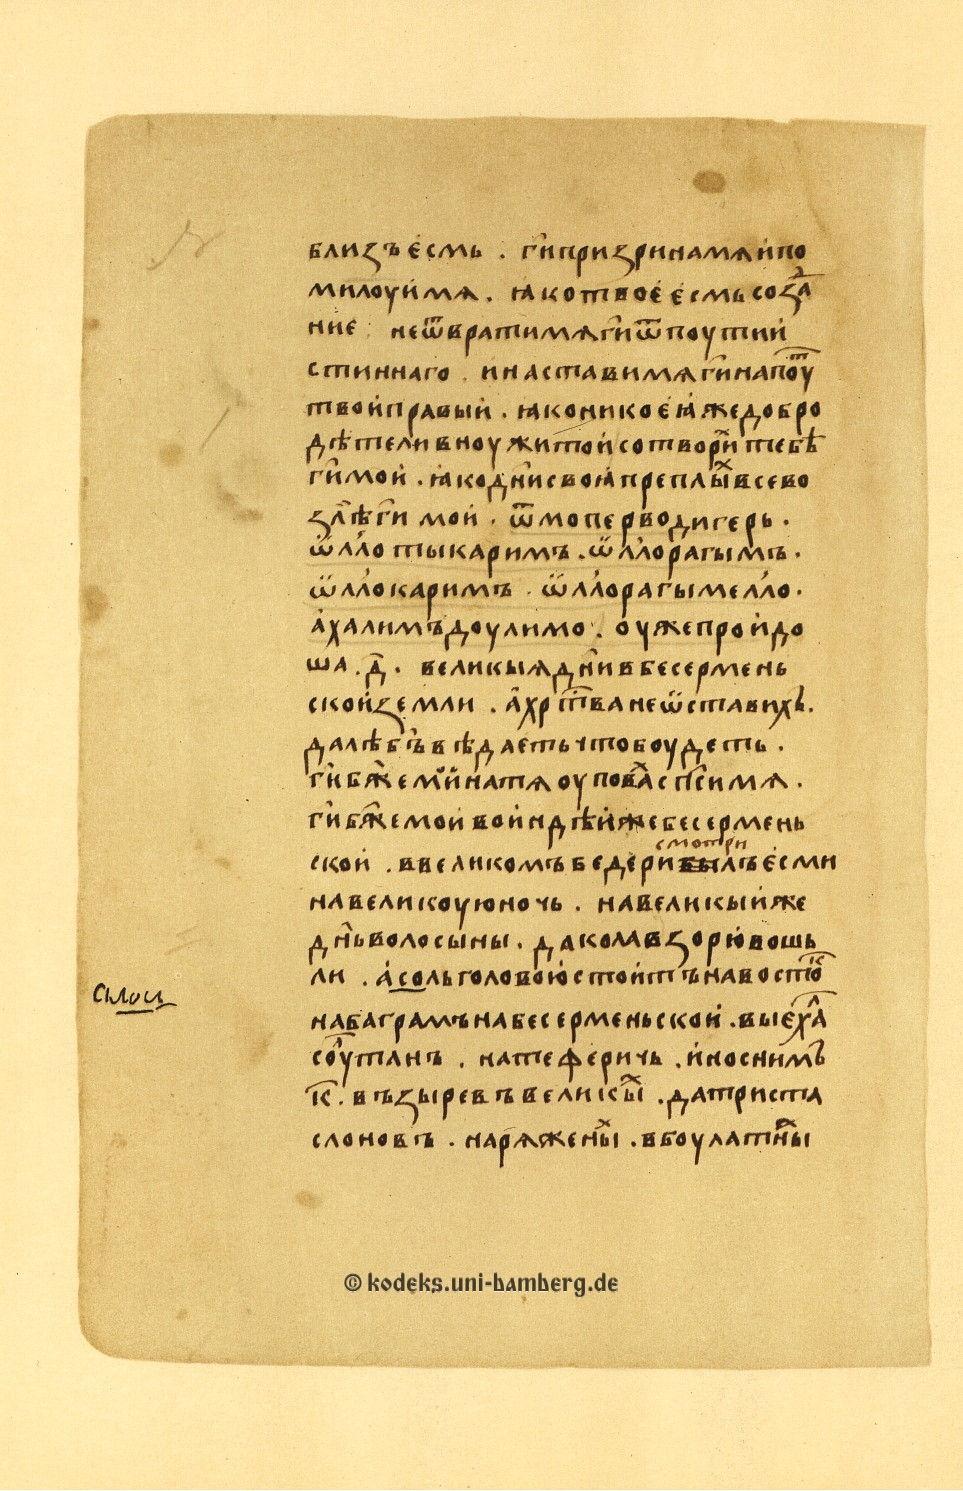 близъ є҆смь . гй призри на мя и҆ по
милоуи҆ мя . ꙗко твоє҆ є҆смь созда
ние не ѿврати мя гй ѿ поути и҆
стиннаго . и настави мя гй на поуⷮ
твои҆ правыи҆ . ꙗко никоє҆ꙗ же добро
дѣтели в ноужи тои҆ сотвориⷯ тебѣ
гй мои҆ . ꙗко дни своꙗ преплыⷯ все во
злѣ гй мои . ѿмо перводигерь .
ѡ҆лло ты каримъ . ѡ҆лло рагымъ .
ѡ҆лло каримъ ѡ҆лло рагымелло .
а҆халимъ доулимо . оуже прои҆до
ша . д҃ . великыя дни в бесермень
ской земли . а҆ хртⷭва не ѡ҆ставихъ .
далѣ бг҃ъ вѣдаеть что боудеть .
гй бж҃е мои҆ на тя оуповаⷯ спс҃и мя .
гй бж҃е мой во и҆ндѣи҆ же бесермень
ской . в великомъ бедери смотрилъ є҆сми
на великоую ночь . на великыи҆ же
днь волосыны . да кола в зорю вошь
ли . а҆ соль головою стои҆тъ на востоⷦ
на баграмъ на бесерменьской . выє҆хаⷧ
соутанъ . на теферичь . и҆но с нимъ
к҃ . възыревъ великыⷯ . да триста
слоновъ . наряженыⷯ . в боулатныⷯ
© kodeks.uni-bamberg.de